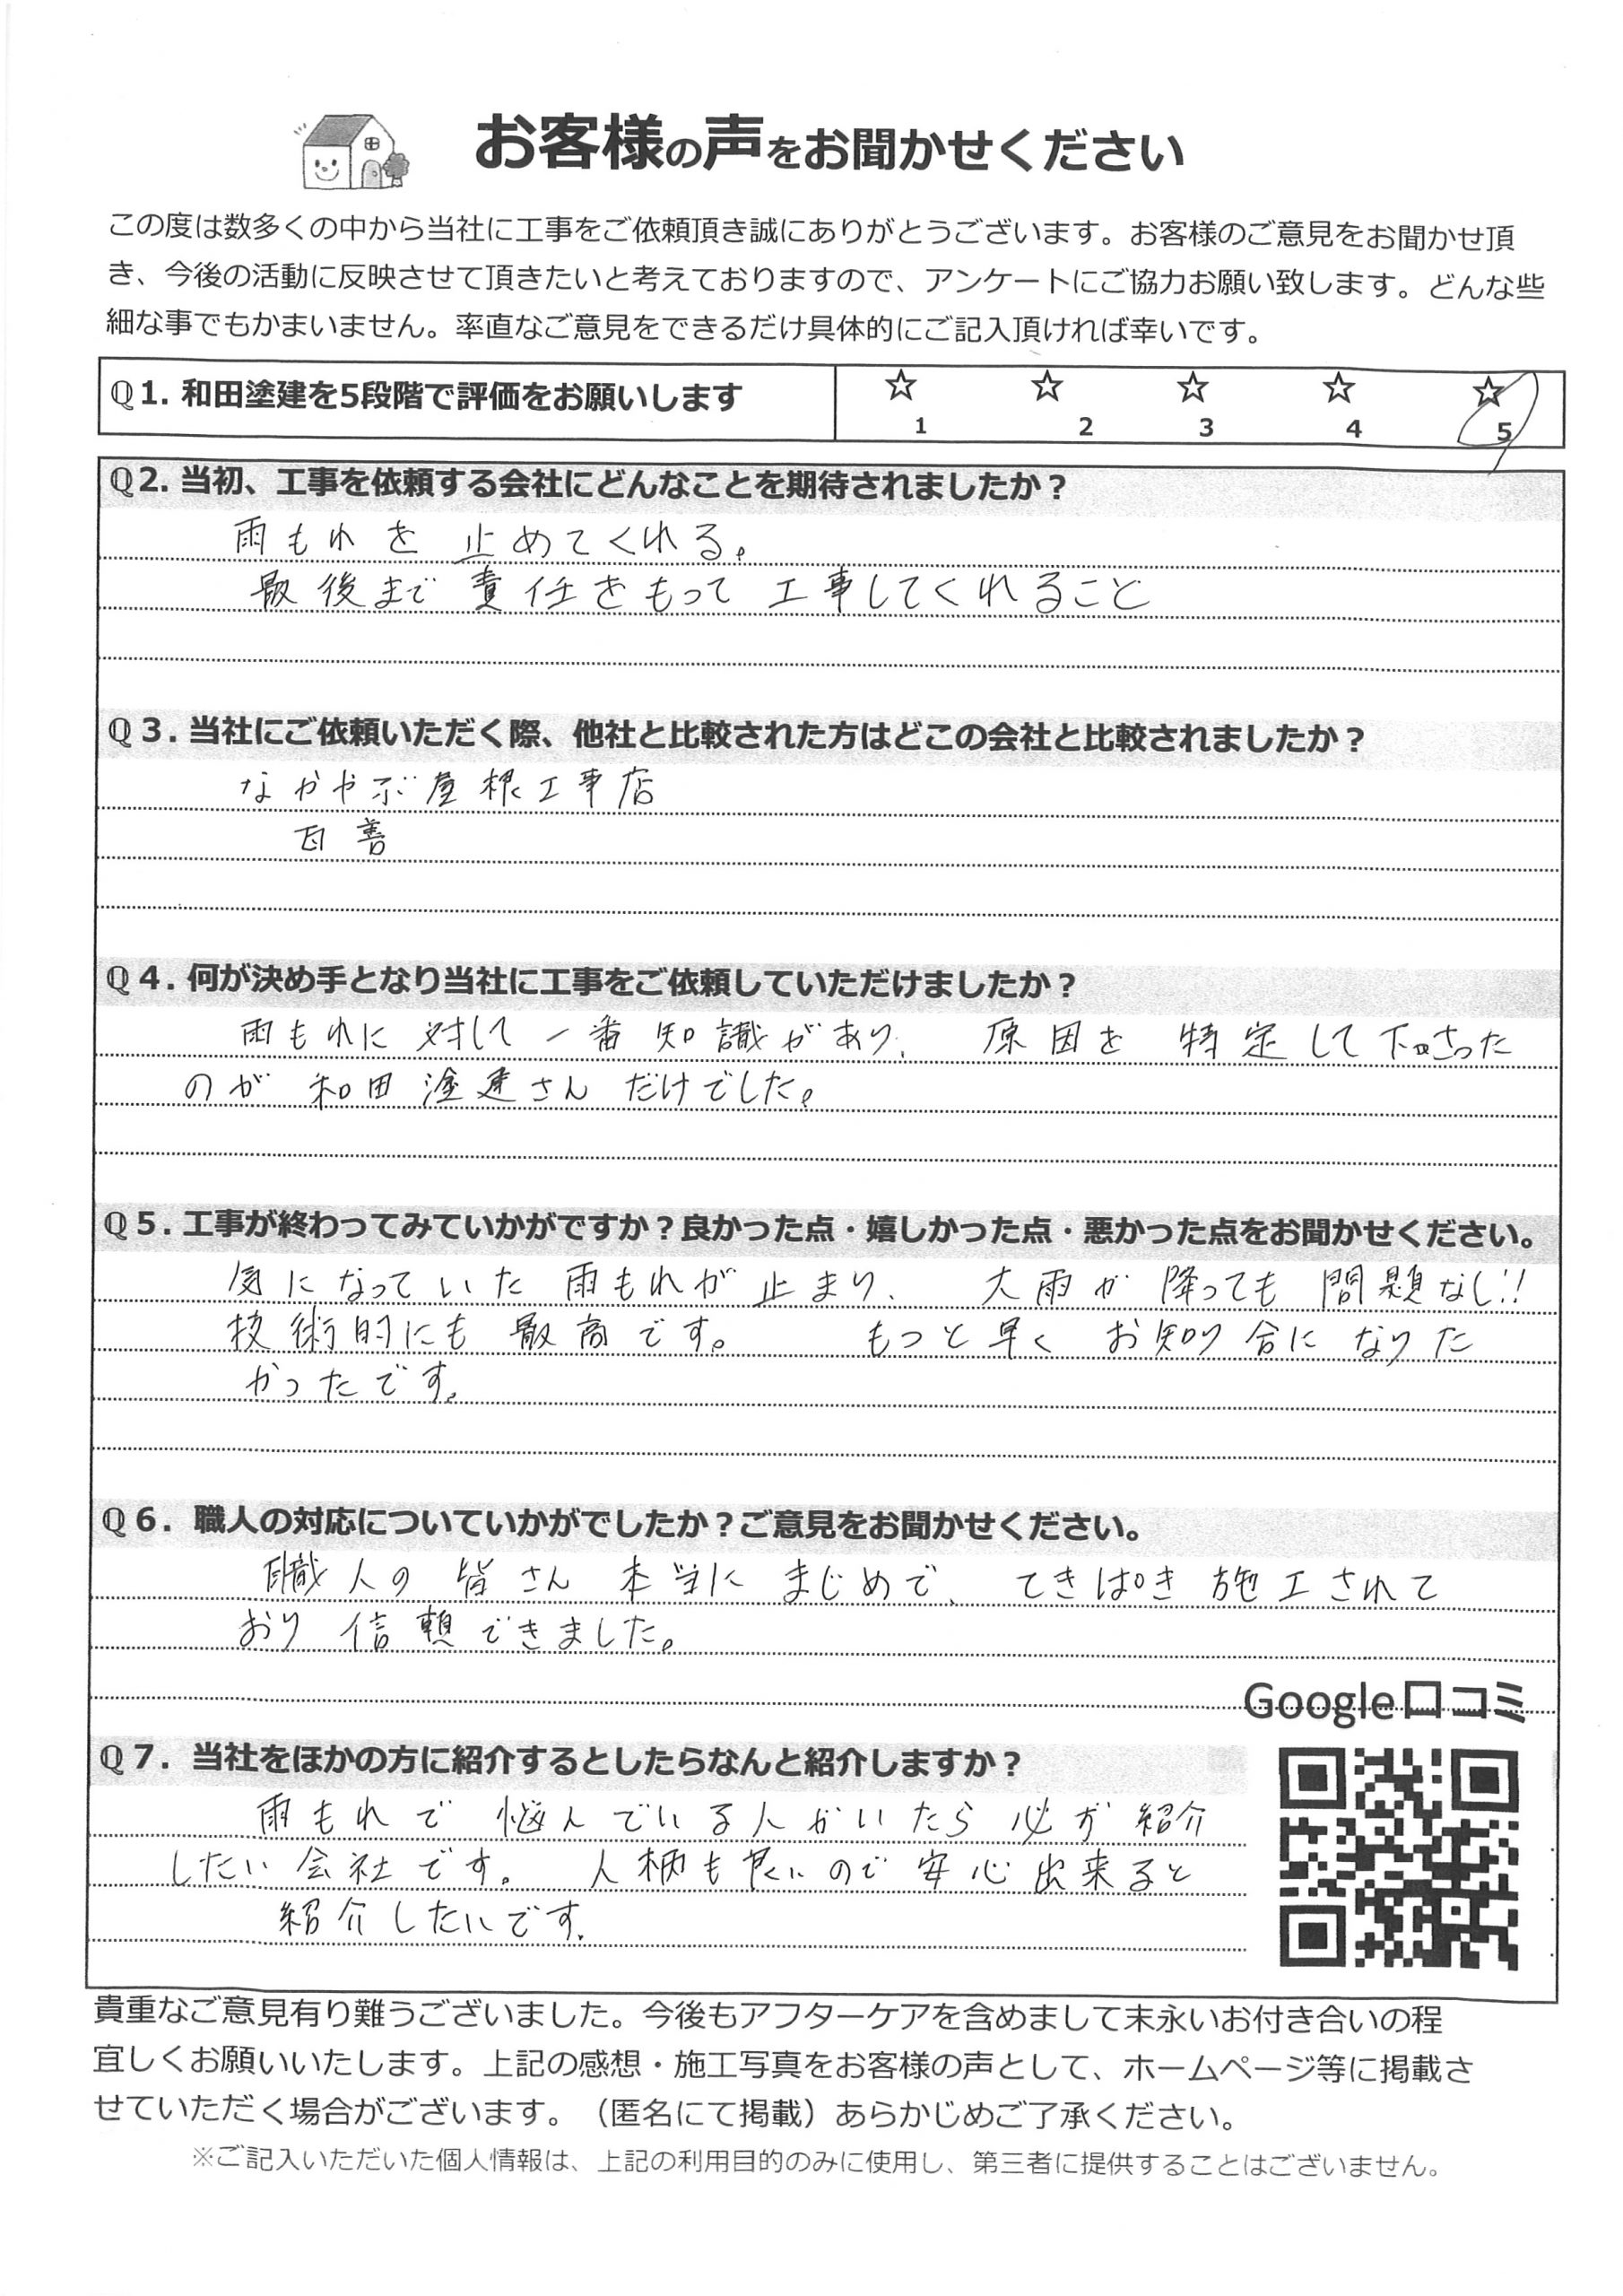 お客様の声をお聞かせください
この度は数多くの中から当社に工事をご依頼頂き誠にありがとうございます。お客様のご意見をお聞かせ頂
き、今後の活動に反映させて頂きたいと考えておりますので、アンケートにご協力お願い致します。どんな些
細な事でもかまいません。率直なご意見をできるだけ具体的にご記入頂ければ幸いです。
Q1. 和田塗建を5段階で評価をお願いします
☆ ☆ ☆ ☆ ☆
1 2 3 4 5
Q2. 当初、工事を依頼する会社にどんなことを期待されましたか？
雨もれを止めてくれる。
最後まで責任をもって工事してくれること
Q３. 当社にご依頼いただく際、他社と比較された方はどこの会社と比較されましたか？
なかやぶ屋根工事店
瓦善
Q４. 何が決め手となり当社に工事をご依頼していただけましたか？
雨もれに対して一番知識があり、原因を特定して下さった
のが和田塗建さんだけでした。
Q５. 工事が終わってみていかがですか？良かった点・嬉しかった点・悪かった点をお聞かせください。
気になっていた雨もれが止まり、大雨が降っても問題なし!!
技術的にも最高です。もっと早くお知り合になりた
かったです。
Q６. 職人の対応についていかがでしたか？ご意見をお聞かせください。
職人の皆さん本当にまじめで、てきぱき施工されて
おり信頼できました。
Google口コミ
Q７. 当社をほかの方に紹介するとしたらなんと紹介しますか？
雨もれで悩んでいる人がいたら必ず紹介
したい会社です。人柄も良いので安心出来ると
紹介したいです。
貴重なご意見有り難うございました。今後もアフターケアを含めまして末永いお付き合いの程
宜しくお願いいたします。上記の感想・施工写真をお客様の声として、ホームページ等に掲載さ
せていただく場合がございます。（匿名にて掲載）あらかじめご了承ください。
※ご記入いただいた個人情報は、上記の利用目的のみに使用し、第三者に提供することはございません。